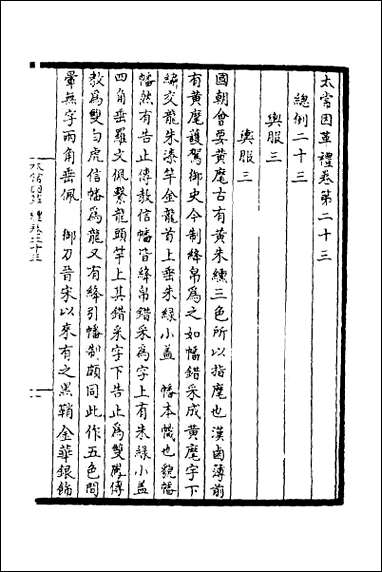 太常因革禮卷第二十三
總例二十三
輿服三
輿服三
國朝會要黃麾古有黃朱纁三色所以指麾也漢鹵薄前
有黃麾護駕御史今制絳帛爲之如幡錯采成黃麾字下
編交龍朱漆竿金龍首上垂朱綠小蓋 幡本幟也貌幡
幡然有告止傳敎信幡皆絳帛錯采爲字上有朱綠小蓋
四角垂羅文佩繫龍頭竿上其錯采字下告止爲雙鳳傳
敎爲雙白虎信幡爲龍又有絳引幡制頗同此作五色間
暈無字兩角垂佩 御刀晉宋以來有之黑鞘金華銀飾